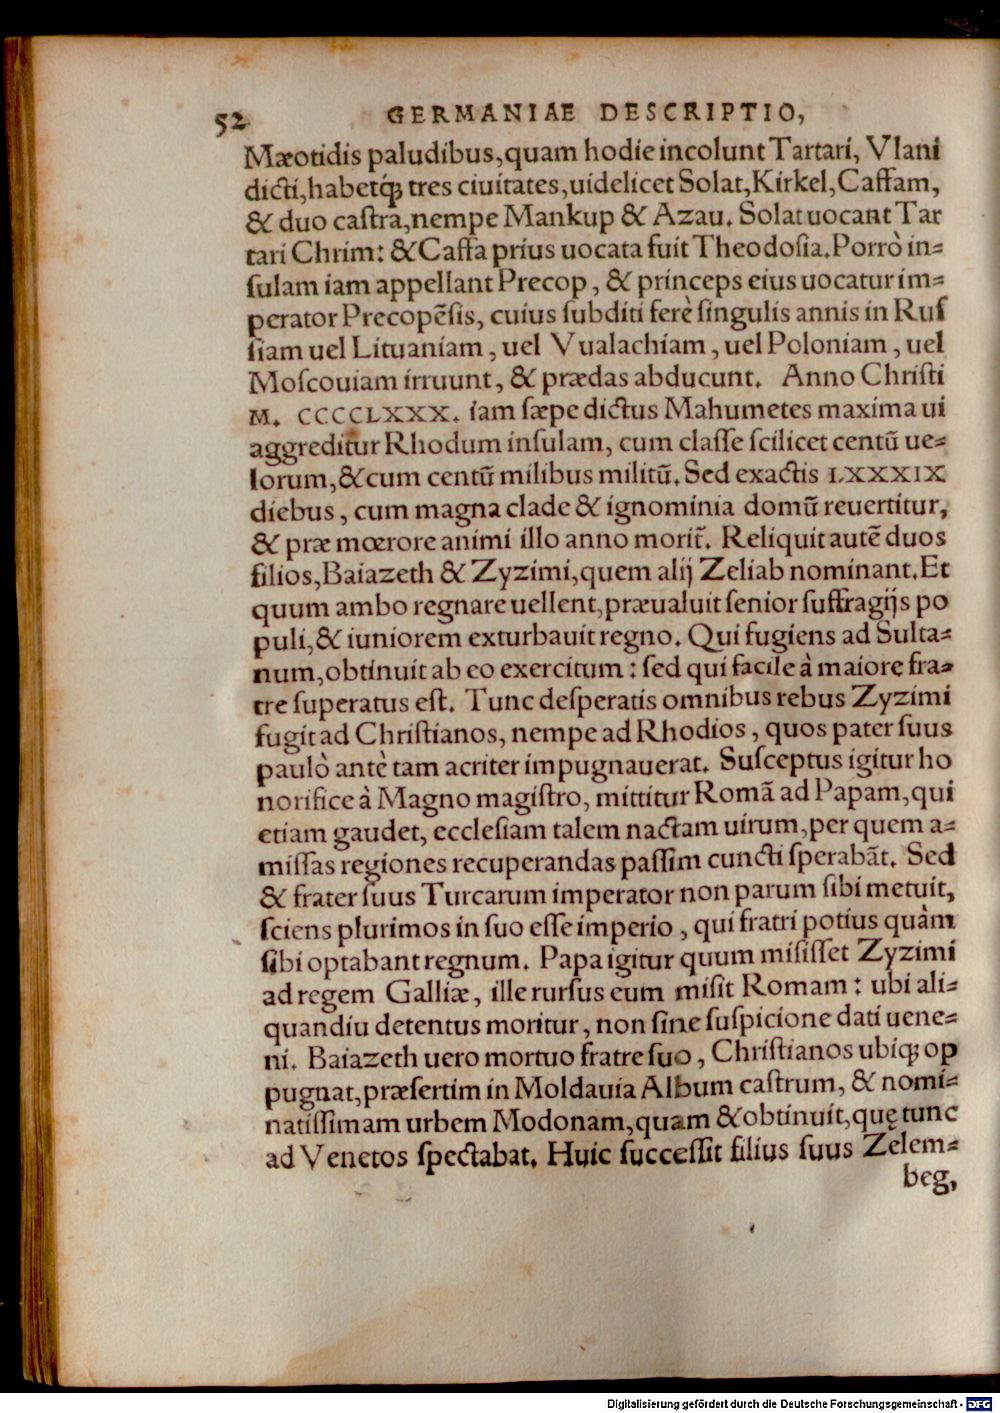 52 GERMANIAE DESCRIPTIO,
Mæotidis paludibus, quam hodie incolunt Tartari, Vlani
dicti, habetq́; tres ciuitates, uidelicet Solat, Kirkel, Caffam,
& duo caſtra, nempe Mankup & Azau. Solat uocant Tar
tari Chrim: & Caffa prius uocata fuit Theodoſia. Porrò in=
ſulam iam appellant Precop, & princeps eius uocatur im=
perator Precopẽſis, cuius ſubditi ferè ſingulis annis in Ruſ
ſiam uel Lituaniam, uel Vualachiam, uel Poloniam, uel
Moſcouiam irruunt, & prædas abducunt. Anno Chriſti
M. CCCCLXXX. iam ſæpe dictus Mahumetes maxima ui
aggreditur Rhodum inſulam, cum claſſe ſcilicet centũ ue=
lorum, & cum centũ milibus militũ. Sed exactis LXXXIX
diebus, cum magna clade & ignominia domũ reuertitur,
& præ mœrore animi illo anno morit̃. Reliquit autẽ duos
filios, Baiazeth & Zyzimi, quem alij Zeliab nominant. Et
quum ambo regnare uellent, præualuit ſenior ſuffragijs po
puli, & iuniorem exturbauit regno. Qui fugiens ad Sulta=
num, obtinuit ab eo exercitum: ſed qui facile à maiore fra=
tre ſuperatus eſt. Tunc deſperatis omnibus rebus Zyzimi
fugit ad Chriſtianos, nempe ad Rhodios, quos pater ſuus
paulò antè tam acriter impugnauerat. Suſceptus igitur ho
norifice à Magno magiſtro, mittitur Romã ad Papam, qui
etiam gaudet, eccleſiam talem nactam uirum, per quem a=
miſſas regiones recuperandas paſſim cuncti ſperabãt. Sed
& frater ſuus Turcarum imperator non parum ſibi metuit,
ſciens plurimos in ſuo eſſe imperio, qui fratri potius quàm
ſibi optabant regnum. Papa igitur quum miſiſſet Zyzimi
ad regem Galliæ, ille rurſus eum miſit Romam: ubi ali=
quandiu detentus moritur, non ſine ſuſpicione dati uene=
ni. Baiazeth uero mortuo fratre ſuo, Chriſtianos ubiq; op
pugnat, præſertim in Moldauia Album caſtrum, & nomi=
natiſſimam urbem Modonam, quam & obtinuit, quę tunc
ad Venetos ſpectabat. Huic ſucceſſit filius ſuus Zelem=
beg,
Digitalisierung gefördert durch die Deutsche Forschungsgemeinschaft - DFG